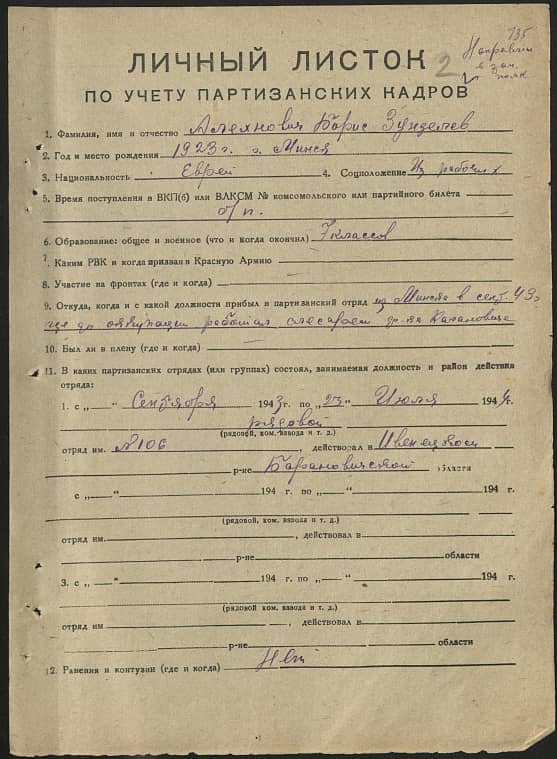 135
ЛИЧНЫЙ ЛИСТОК 2 Направлен
ПО УЧЕТУ ПАРТИЗАНСКИХ КАДРОВ
1. Фамилия, имя и отчество Алехнович Борис Зунделев
2. Год и место рождения 1923 г. г. Минск
3. Национальность Еврей 4. Соцположение Из рабочих
5. Время поступления в ВКП(б) или ВЛКСМ № комсомольского или партийного билета
б/п.
6. Образование: общее и военное (что и когда окончил) 7 классов
7. Каким РВК и когда призван в Красную Армию
8. Участие на фронтах (где и когда)
9. Откуда, когда и с какой должности прибыл в партизанский отряд из Минска в сент. 43 г
где до оккупации работал слесарем
10. Был ли в плену (где и когда)
11. В каких партизанских отрядах (или группах) состоял, занимаемая должность и район действия
отряда:
1. с „ “ Сентября 1943 г. по „23 “ Июля 1944 г.
рядовой
(рядовой, ком. взвода и т. д.)
отряд им. №106 , действовал в Ивенецком
р-не Барановичской области
с „ “ 194 г. по „ “ 194 г.
(рядовой, ком. взвода и т. д.)
отряд им. , действовал в
р-не области
3. с „ “ 194 г. по „ “ 194 г.
(рядовой, ком. взвода и т. д.)
отряд им , действовал в
р-не области
12. Ранения и контузии (где и когда) Нет